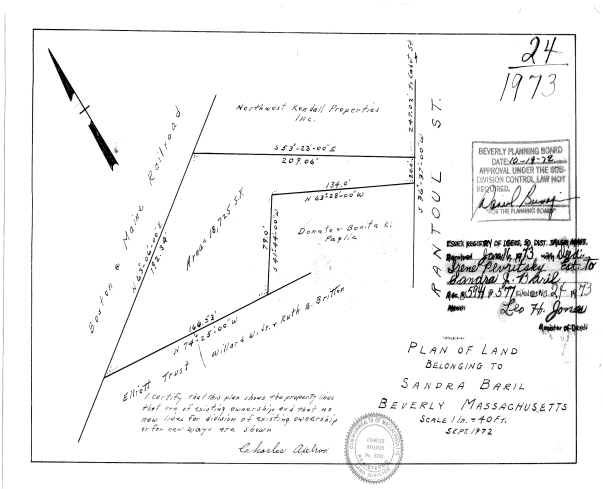 24
1973
Northwest Kendall Properties
Inc.
S 53°-23'-00"E
209.06'
247.02' To Cabot St.
S 36°-37'-00"W
RANTOUL ST.
Boston & Maine Railroad
N 65°-06'-00"E
192.34'
Area = 18,725 S.F.
134.0'
N 63°-28'-00"W
79.0'
S 41°-44'-00"W
Donato & Bonita K.
Paglia
166.53'
N 74°-25'-00"W
Elliott Trust
Willard W. Jr. & Ruth B. Britton
BEVERLY PLANNING BOARD
DATE: 10-19-72
APPROVAL UNDER THE SUB-
DIVISION CONTROL LAW NOT
REQUIRED.
FOR THE PLANNING BOARD
ESSEX REGISTRY OF DEEDS, SO. DIST. SALEM, MASS.
Received Jan 1973 with Deed
Irene Pevritsky et to
Sandra J. Baril
Rec. B. 5944 P. 577 No. 24 1973
Attest:
Leo H. Jones
Register of Deeds
PLAN OF LAND
BELONGING TO
SANDRA BARIL
BEVERLY MASSACHUSETTS
SCALE 1 In. = 40 FT.
SEPT. 1972
I certify that this plan shows the property lines
that are of existing ownership and that no
new lines for division of existing ownership
or for new ways are shown
Charles